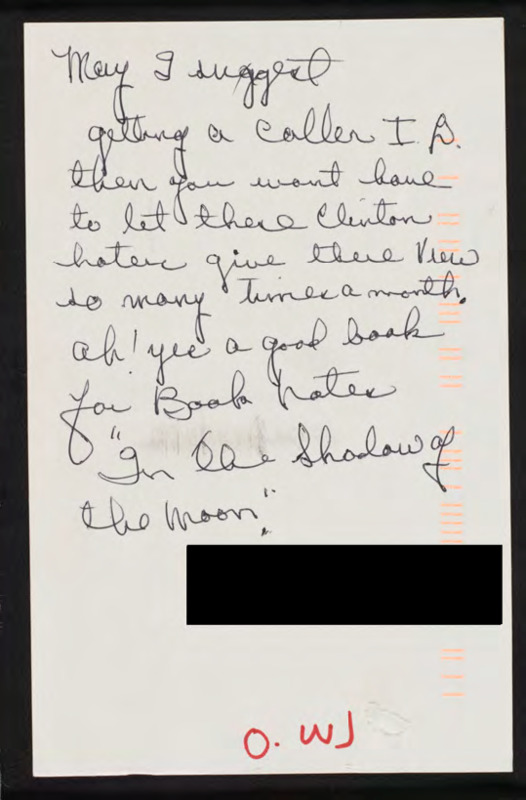 May I suggest
getting a caller I.D.
then you wont have
to let these Clinton
haters give there View
so many times a month.
ah! yes a good book
for Book Notes
"In the Shadow of
the Moon".
O. WJ